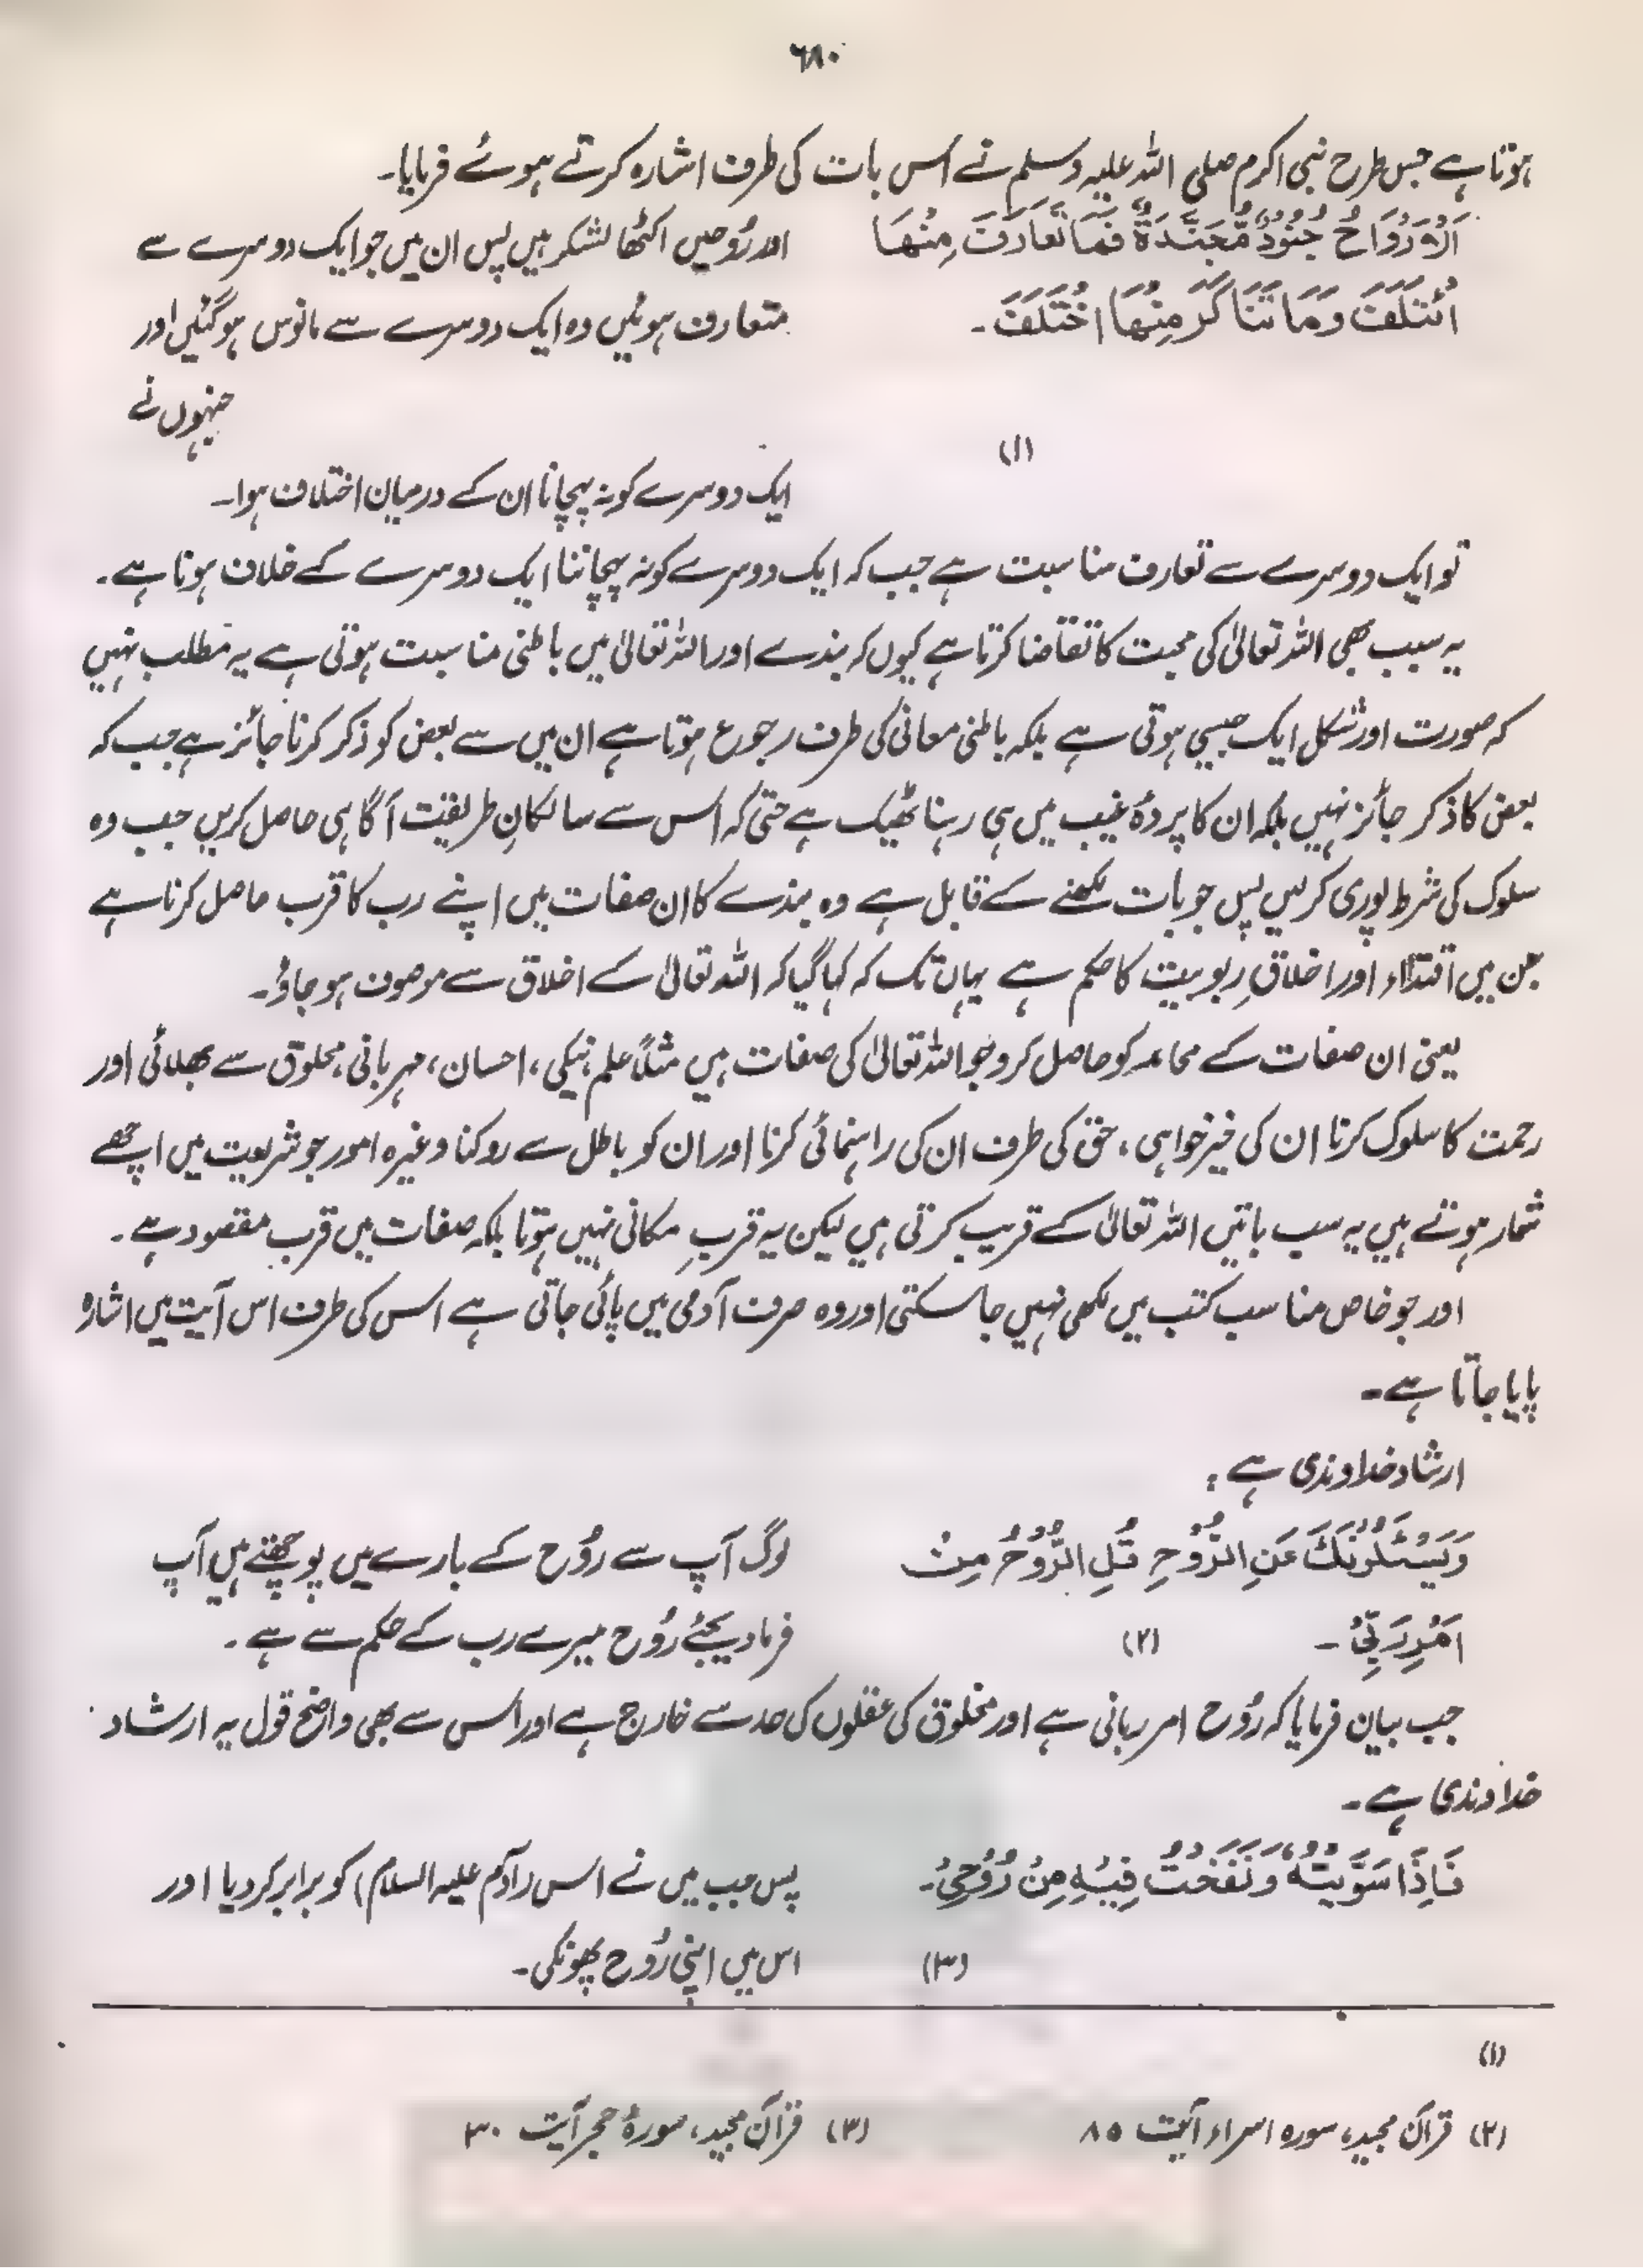 ٦٨٠
ہوتا ہے جس طرح نبی اکرم صلی اللہ علیہ وسلم نے اس بات کی طرف اشارہ کرتے ہوئے فرمایا۔
اَلْاَرْوَاحُ جُنُوْدٌ مُّجَنَّدَةٌ فَمَا تَعَارَفَ مِنْهَا
اور رُوحیں اکٹھا لشکر ہیں پس ان میں جو ایک دوسرے سے
اُئْتَلَفَ وَمَا تَنَاكَرَ مِنْهَا اخْتَلَفَ۔
متعارف ہوئیں وہ ایک دوسرے سے مانوس ہوگئیں اور
جنہوں نے
(۱)
ایک دوسرے کو نہ پہچانا ان کے درمیان اختلاف ہوا۔
تو ایک دوسرے سے تعارف مناسبت ہے جب کہ ایک دوسرے کو نہ پہچاننا ایک دوسرے کے خلاف ہونا ہے۔
یہ سبب بھی اللہ تعالیٰ کی محبت کا تقاضا کرتا ہے کیوں کہ بندے اور اللہ تعالیٰ میں باطنی مناسبت ہوتی ہے یہ مطلب نہیں
کہ صورت اور شکل ایک جیسی ہوتی ہے بلکہ باطنی معانی کی طرف رجوع ہوتا ہے ان میں سے بعض کو ذکر کرنا جائز ہے جب کہ
بعض کا ذکر جائز نہیں بلکہ ان کا پردۂ غیب میں ہی رہنا ٹھیک ہے حتیٰ کہ اس سے سالکانِ طریقت آگاہی حاصل کریں جب وہ
سلوک کی شرط پوری کرلیں پس جو بات لکھنے کے قابل ہے وہ بندے کا ان صفات میں اپنے رب کا قرب حاصل کرنا ہے
جن میں اقتداء اور اخلاقِ ربوبیت کا حکم ہے یہاں تک کہ کہا گیا کہ اللہ تعالیٰ کے اخلاق سے موصوف ہو جاؤ۔
یعنی ان صفات کے محامد کو حاصل کرو جو اللہ تعالیٰ کی صفات ہیں مثلاً علم، نیکی، احسان، مہربانی، مخلوق سے بھلائی اور
رحمت کا سلوک کرنا ان کی خیر خواہی، حق کی طرف ان کی راہنمائی کرنا اور ان کو باطل سے روکنا وغیرہ امور جو شریعت میں اچھے
شمار ہوتے ہیں یہ سب باتیں اللہ تعالیٰ کے قریب کرتی ہیں لیکن یہ قربِ مکانی نہیں ہوتا بلکہ صفات میں قرب مقصود ہے۔
اور جو خاص مناسب کتب میں لکھی نہیں جا سکتی اور وہ صرف آدمی میں پائی جاتی ہے اس کی طرف اس آیت میں اشارہ
پایا جاتا ہے۔
ارشاد خداوندی ہے:
وَيَسْئَلُوْنَكَ عَنِ الرُّوْحِ قُلِ الرُّوْحُ مِنْ
لوگ آپ سے رُوح کے بارے میں پوچھتے ہیں آپ
اَمْرِ رَبِّیْ۔ (۲)
فرما دیجئے رُوح میرے رب کے حکم سے ہے۔
جب بیان فرمایا کہ رُوح امر ربانی ہے اور مخلوق کی عقلوں کی حد سے خارج ہے اور اس سے بھی واضح قول یہ ارشاد
خداوندی ہے۔
فَاِذَا سَوَّيْتُهٗ وَنَفَخْتُ فِيْهِ مِنْ رُّوْحِیْ۔
پس جب میں نے اس (آدم علیہ السلام) کو برابر کر دیا اور
(۳)
اس میں اپنی رُوح پھونکی۔
(۱)
(۲) قرآن مجید، سورہ اسراء آیت ۸۵
(۳) قرآن مجید، سورۂ حجر آیت ۳۰